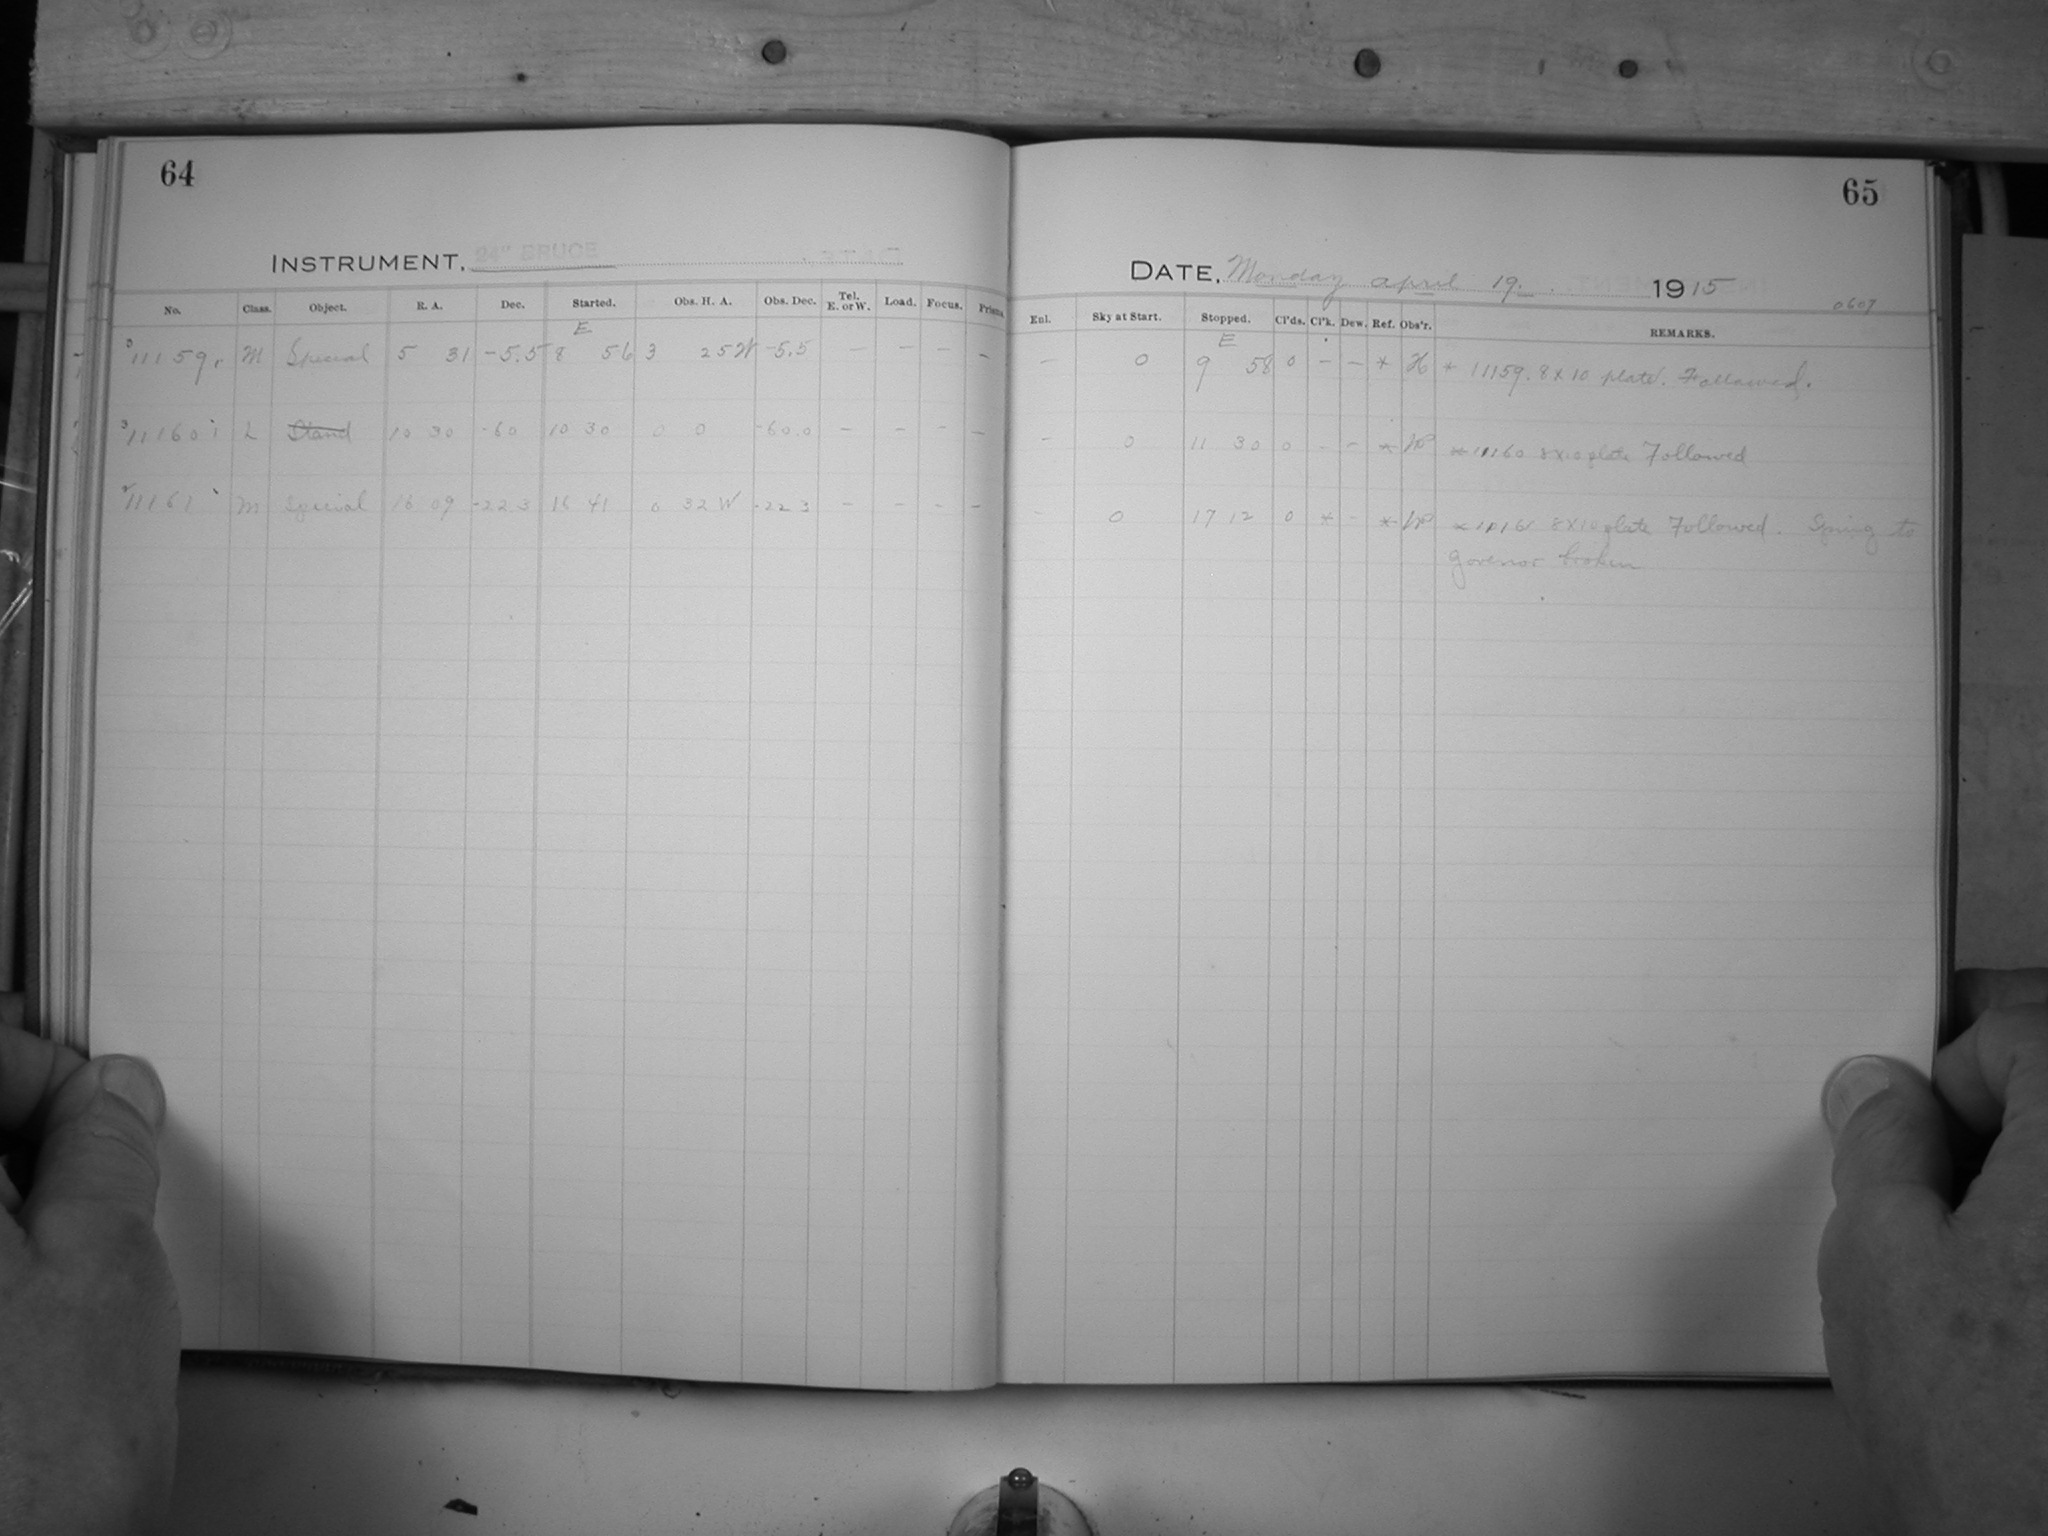 64
INSTRUMENT, 24" BRUCE
No. Class. Object. R. A. Dec. Started. Obs. H. A. Obs. Dec. Tel. E. or W. Load. Focus. Prisms
E
3 11159 M Special 5 31 -5.5 8 56 3 25 W -5.5 — — — —
3 11160 L Stand 10 30 -60 10 30 0 0 -60.0 — — — —
11161 M Special 16 09 -22.3 16 41 0 32 W -22.3 — — — —
65
DATE, Monday April 19. 1915
0607
Enl. Sky at Start. Stopped. Cl'ds. Cl'k. Dew. Ref. Obs'r. REMARKS.
E
— 0 9 58 0 — — * H * 11159. 8x10 plate. Followed.
— 0 11 30 0 — — * * 11160 8x10 plate Followed
— 0 17 12 0 * — * * 11161 8x10 plate Followed. Spring to
Govenor broken